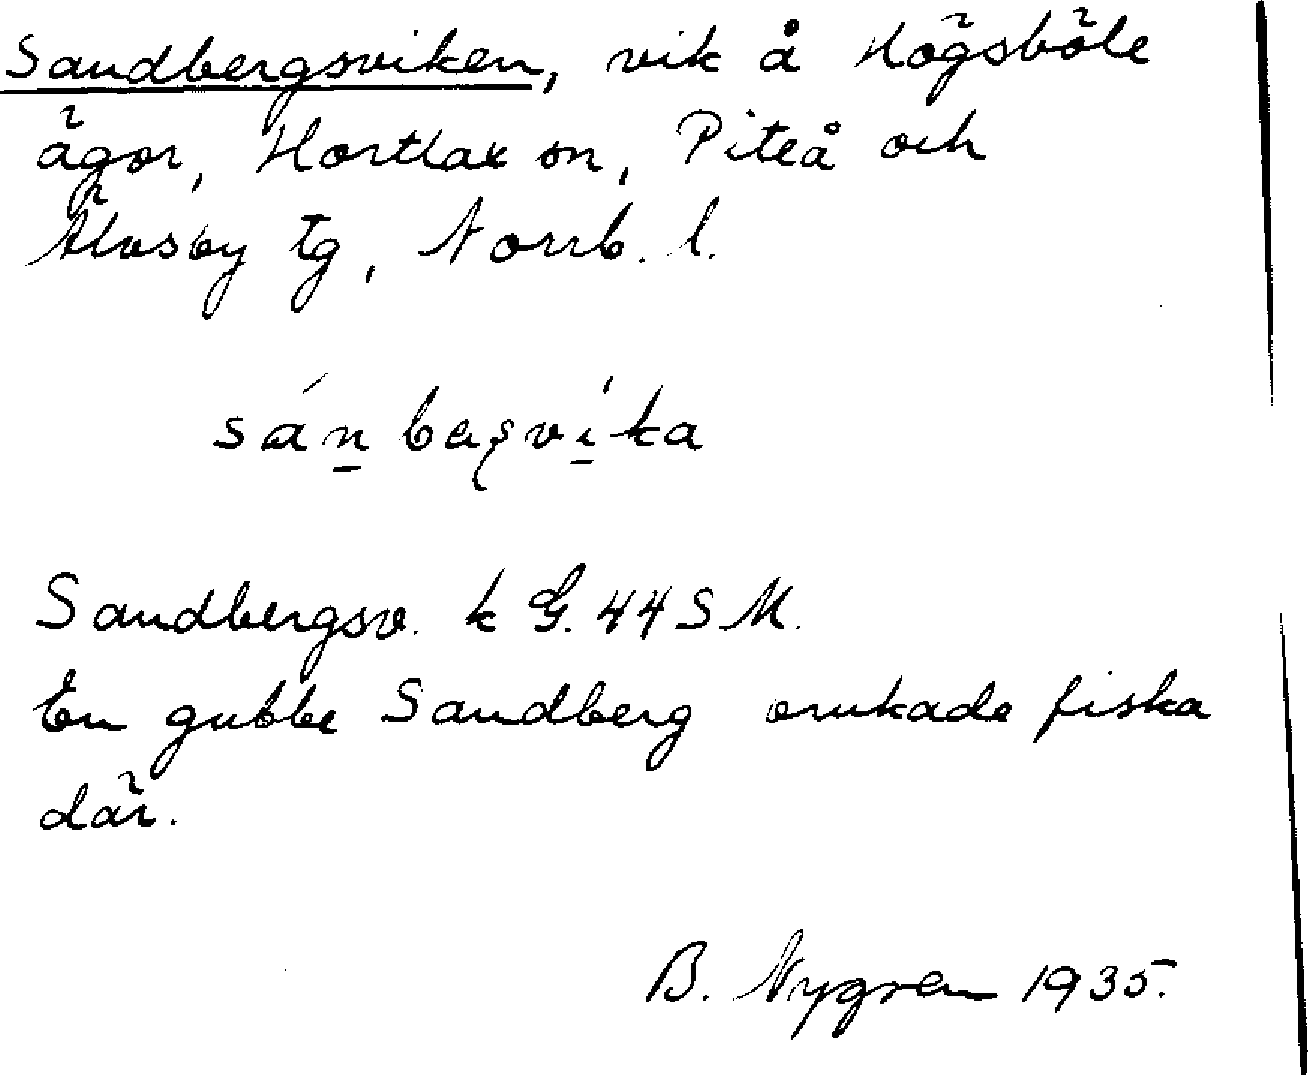 Sandbergsviken, vik å Högsböle
ägor, Hortlax sn, Piteå och
Älvsby tg, Norrb. l.
sánbaʂvíka
Sandbergsv. k G. 44 S M.
En gubbe Sandberg brukade fiska
där.
B. Nygren 1935.